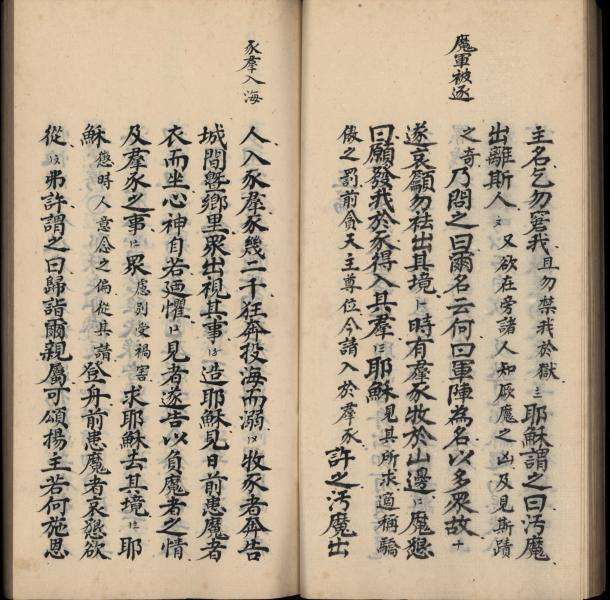 魔軍被逐
主名乞勿窘我且勿禁我於獄耶穌謂之曰汚魔
出離斯人又欲在旁諸人知厥魔之凶及見斯蹟
之奇乃問之曰爾名云何曰軍陣為名以多眾故
遂哀籲勿袪出其境時有羣豕牧於山邊魔懇
曰願發我於豕得入其羣耶穌見其所求適稱驕
傲之罰前貪天主尊位今請入於羣豕許之汚魔出
豕羣入海
人入豕羣豕幾二千狂奔投海而溺牧豕者奔告
城間曁鄉里眾出視其事造耶穌見日前患魔者
衣而坐心神自若廼懼見者遂告以負魔者之情
及羣豕之事眾慮別受禍害求耶穌去其境耶
穌應時人意念之偏從其請登舟前患魔者哀懇欲
從弗許謂之曰歸詣爾親屬可頌揚主若何施恩